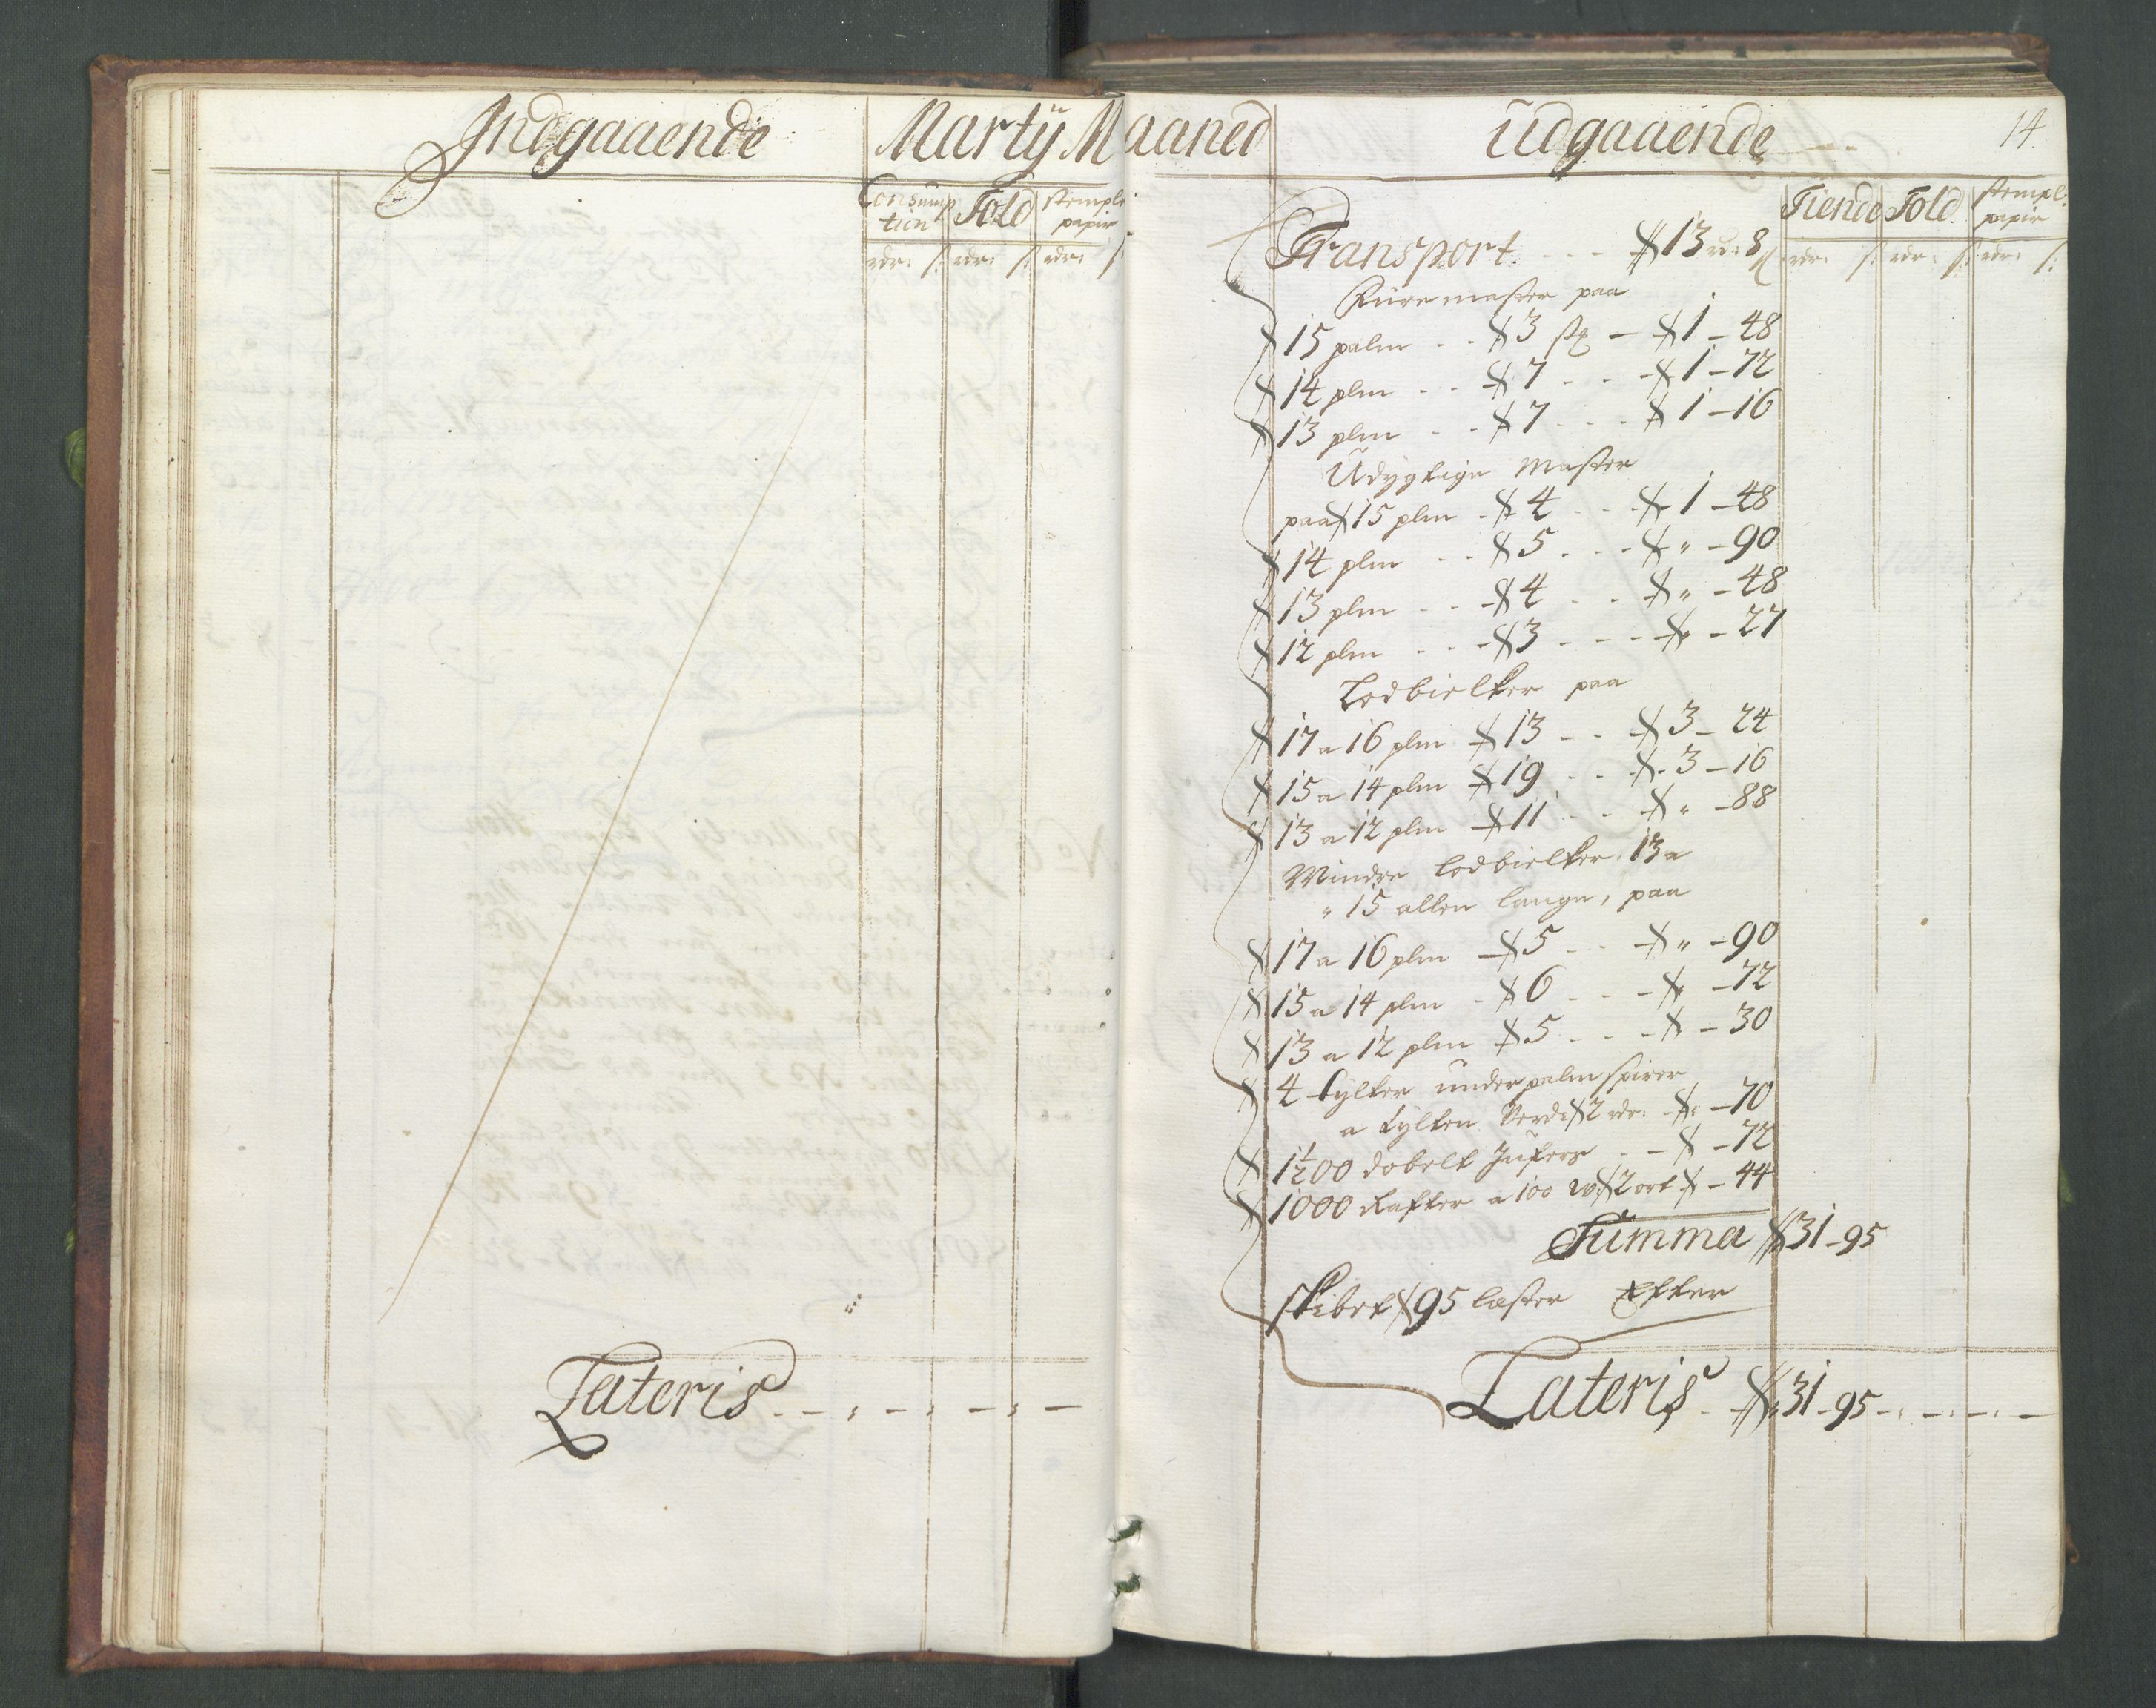 Indgaaende
Martij Maaned
Consump
tion
Told
stemplt
papir
rdr: s: rdr: s: rdr: s:
Lateris - - : - : - : -
Udgaaende
14.
Tiende Told stempl:
papir
rdr: s: rdr: s: rdr: s:
Transport - - - 13 rd: 8 s
Füremaster paa
15 palm - - 3 st - 1 - 48
14 plm - - 7 - - - 1 - 72
13 plm - - 7 - - - 1 - 16
Udygtige Master
paa 15 plm - 4 - - - 1 - 48
14 plm - - 5 - - - " - 90
13 plm - - 4 - - - " - 48
12 plm - - - 3 - - - " - 27
Lodbielker paa
17 a 16 plm 13 - - 3 - 24
15 a 14 plm 19 - - 3 - 16
13 a 12 plm 11 - - " - 88
Mindre lodbielker 13 a
" 15 allen lange, paa
17 a 16 plm - 5 - - " - 90
15 a 14 plm - 6 - - - " - 72
13 a 12 plm 5 - - - " - 30
4 tylter under palm spirer
a tylten Verd: 2 rdr: - " - 70
1½00 dobelt Jufers - - - 72
1000 Rafter a 100 W: 2 ort - 44
Summa 31 - 95
skibet 95 læster Efter
Lateris - 31 - 95 - : - : - : -